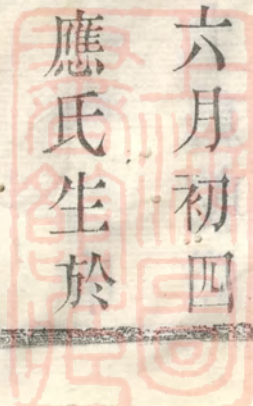 六月初四
應氏生於